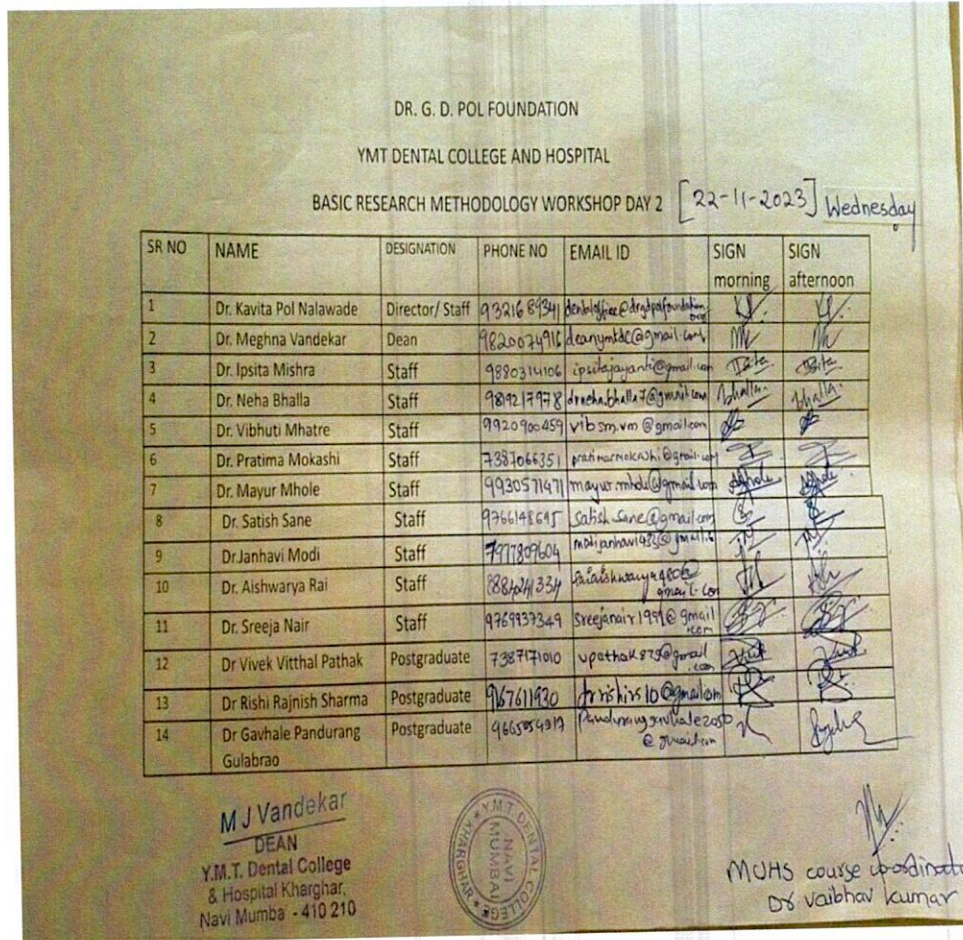 DR. G. D. POL FOUNDATION
YMT DENTAL COLLEGE AND HOSPITAL
BASIC RESEARCH METHODOLOGY WORKSHOP DAY 2 [22-11-2023] Wednesday
SR NO NAME DESIGNATION PHONE NO EMAIL ID SIGN morning SIGN afternoon
1 Dr. Kavita Pol Nalawade Director/ Staff 9321689341
2 Dr. Meghna Vandekar Dean 9820074916 deanymtdc@gmail.com
3 Dr. Ipsita Mishra Staff 9880314106 ipsitajayanti@gmail.com
4 Dr. Neha Bhalla Staff 9819217978 drneha.bhalla7@gmail.com Bhalla Bhalla
5 Dr. Vibhuti Mhatre Staff 9920900459 vibsm.vm@gmail.com
6 Dr. Pratima Mokashi Staff 7387066351
7 Dr. Mayur Mhole Staff 9930571471 mayur.mhole@gmail.com
8 Dr. Satish Sane Staff 9766148645 satish.sane@gmail.com
9 Dr.Janhavi Modi Staff 7977809604
10 Dr. Aishwarya Rai Staff
11 Dr. Sreeja Nair Staff 9769937349 sreejanair1999@gmail.com
12 Dr Vivek Vitthal Pathak Postgraduate 7387171010
13 Dr Rishi Rajnish Sharma Postgraduate 9167611930
14 Dr Gavhale Pandurang Gulabrao Postgraduate
M J Vandekar
DEAN
Y.M.T. Dental College
& Hospital Kharghar,
Navi Mumbai - 410 210
Y.M.T. DENTAL COLLEGE
KHARGHAR
NAVI
MUMBAI
MUHS course coordinator
Dr vaibhav kumar